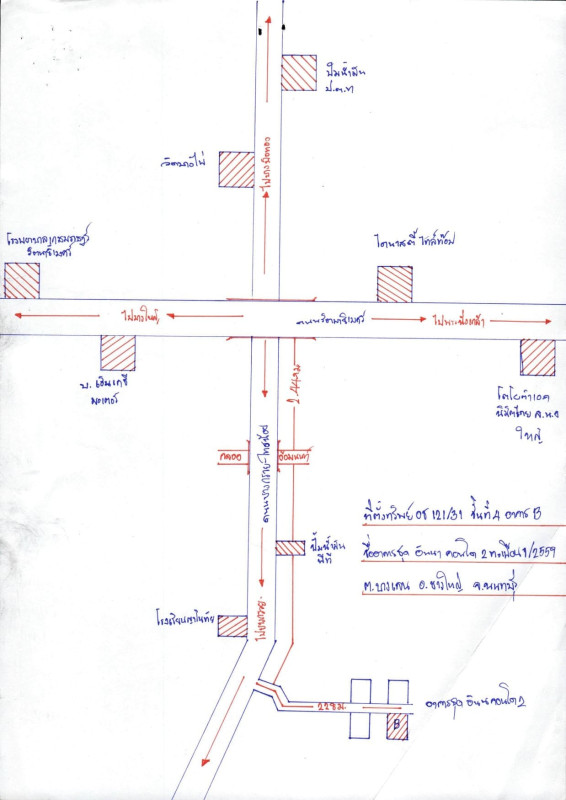 ปั๊มน้ำมัน
ป.ต.ท
ไปบางบัวทอง
โรงพยาบาลเกษมราษฎร์
รัตนาธิเบศร์
ไดนาสตี้ ไทล์ท็อป
ไปบางใหญ่
ถนนรัตนาธิเบศร์
ไปพระนั่งเกล้า
บ. เอ็นเคซี
มอเตอร์
โตโยต้า เอค
ใหญ่
2.44 กม
ถนนบางกรวย-ไทรน้อย
คลอง
อ้อมนนท์
ที่ตั้งทรัพย์ อช 121/31 ชั้นที่ 4 อาคาร B
ชื่ออาคารชุด อินนา คอนโด 2 ทะเบียน 9/2559
ปั๊มน้ำมัน
พีที
ต.บางเลน อ.บางใหญ่ จ.นนทบุรี
ไปบางกรวย
อาคารชุด อินนา คอนโด 2
228 ม.
B